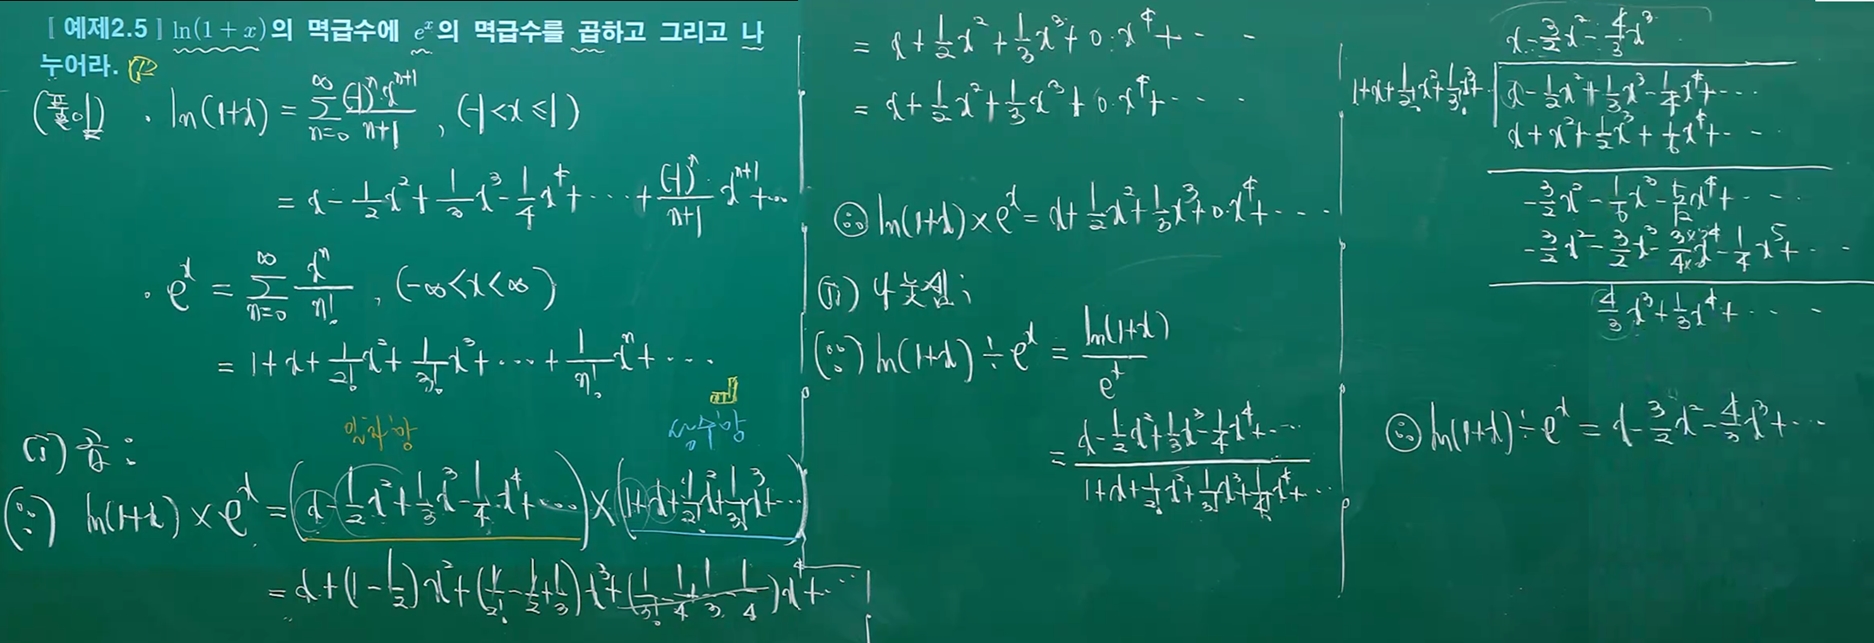 [ 예제2.5 ] ln(1+x)의 멱급수에 e^x의 멱급수를 곱하고 그리고 나
누어라.
(풀이) · ln(1+x) = ∑_{n=0}^{∞} (-1)^n·x^{n+1}/(n+1) , (-1<x≤1)
= x - 1/2 x² + 1/3 x³ - 1/4 x⁴ + ··· + (-1)^n/(n+1) x^{n+1} + ···
· e^x = ∑_{n=0}^{∞} x^n/n! , (-∞<x<∞)
= 1 + x + 1/2! x² + 1/3! x³ + ··· + 1/n! x^n + ····
일차항 상수항
(i) 곱 :
(∵) ln(1+x) × e^x = (x - 1/2 x² + 1/3 x³ - 1/4 x⁴ + ···) × (1 + x + 1/2! x² + 1/3! x³ + ···)
= x + (1 - 1/2) x² + (1/2! - 1/2 + 1/3) x³ + (1/3! - 1/4 + 1/3 - 1/4) x⁴ + ···
= x + 1/2 x² + 1/3 x³ + 0·x⁴ + ···
= x + 1/2 x² + 1/3 x³ + 0·x⁴ + ····
∴ ln(1+x) × e^x = x + 1/2 x² + 1/3 x³ + 0·x⁴ + ····
(ii) 나눗셈 ;
(∵) ln(1+x) ÷ e^x = ln(1+x)/e^x
= (x - 1/2 x² + 1/3 x³ - 1/4 x⁴ + ···)/(1 + x + 1/2! x² + 1/3! x³ + 1/4! x⁴ + ···)
x - 3/2 x² - 4/3 x³
1 + x + 1/2! x² + 1/3! x³ + x - 1/2 x² + 1/3 x³ - 1/4 x⁴ + ···
x + x² + 1/2 x³ + 1/6 x⁴ + ···
- 3/2 x² - 1/6 x³ - 5/12 x⁴ + ···
- 3/2 x² - 3/2 x³ - 3×3/4×3 x⁴ - 1/4 x⁵ + ···
4/3 x³ + 1/3 x⁴ + ····
∴ ln(1+x) ÷ e^x = x - 3/2 x² - 4/3 x³ + ···